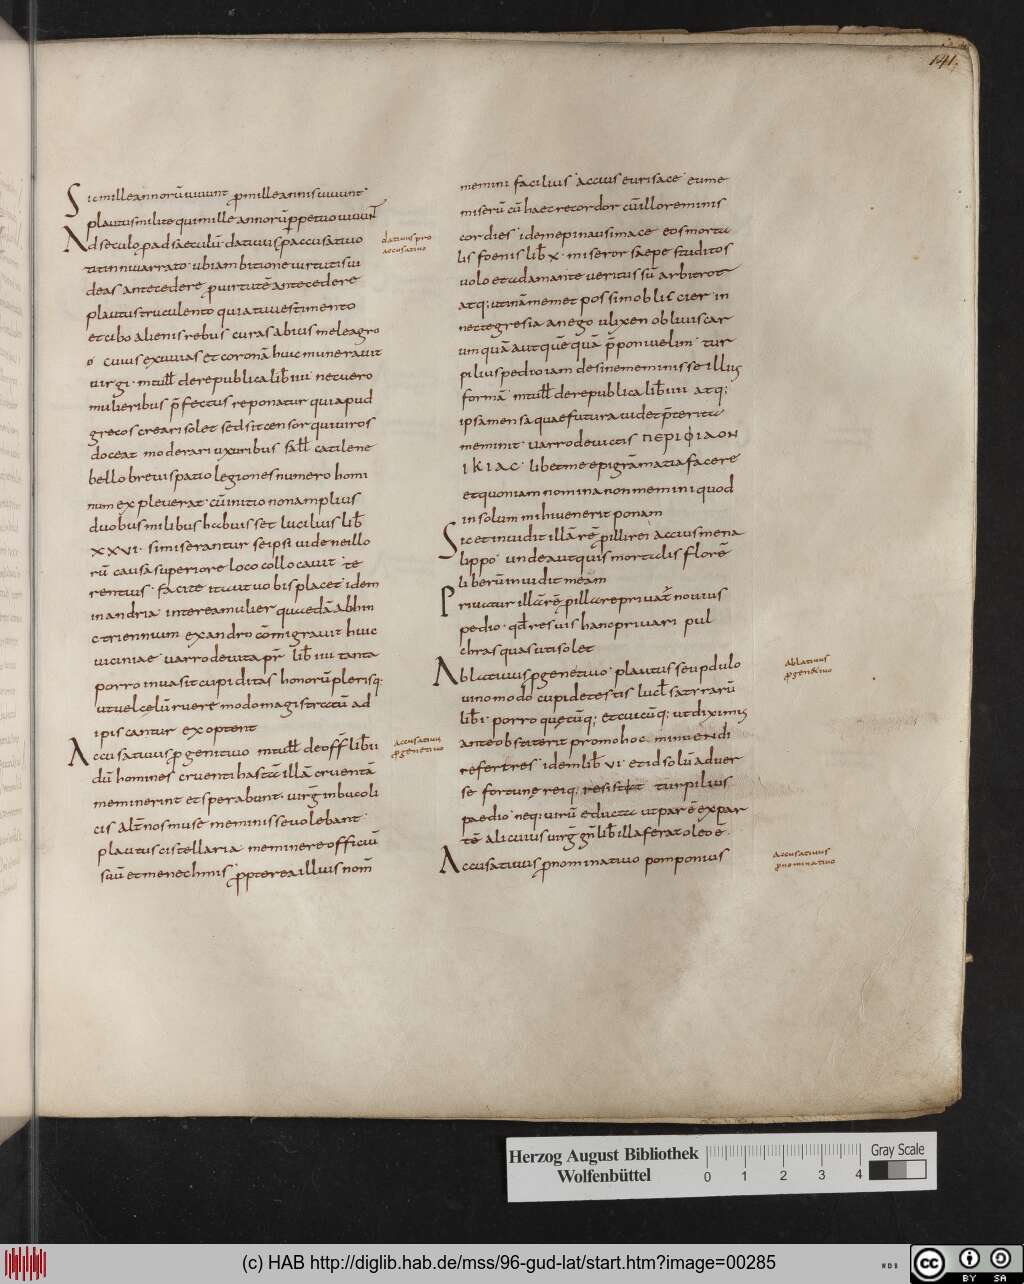 141.
Sic mille annorū uiuunt ꝓ mille annis uiuunt·
plautus milite qui mille annorū ꝑpetuo uiuunt
Ad seculo ꝓ ad sęculū· datiuus ꝓ accusatiuo
titinniuarrato· ubi ambitione uirtuti sui
deas antecedere ꝓ uirtutē antecedere
plautus truculento qui a tuuestimento
et cibo alienis rebus curas abiuus meleagro
o cuius exuuias et coronā huic munerauit
uirgi· m tull̄ de republica lib̄ iiii nec uero
mulieribus p̄fectus reponatur qui apud
grecos creari solet sed sit censor qui uiros
doceat moderari uxoribus sall̄ catilene
bello breui spatio legiones numero homi
num expleuerat· cū initio non amplius
duobus milibus habuisset lucilius lib̄
xxvi· si miserantur se ipsi uide ne illo
rū causā superiore loco collocauit te
rentius· facite ita ut uobis placet· idem
in andria interea mulier quaedā abhin
c triennium ex andro cōmigrauit huic
uiciniae uarro de uita pr̄ lib̄ iiii tanta
porro inuasit cupiditas honorū plerisq;
ut uel cęlū ruere modo magistratū ad
ipiscantur exoptent
Accusatiuus ꝓ genitiuo m tull̄ de off̄ lib̄ ii
dū homines cruenti hastā illā cruentā
meminerint et sperabunt· uirḡ in bucoli
cis alt̄ nos muse meminisse uolebant·
plautus cistellaria meminere officiū
suū et menechmis ꝓpterea illius nom̄
datiuus pro
accusatiuo
accusatiuus
ꝓ genetiuo
memini facilius accius eurisace eume
miserū cū haec recordor cū illo reminis
cor dies· idem epinausimace eos morta
lis foenis lib̄ x· miseror saepe studitos
uolo et adamante ueritus sū arbitror
atq; utinā memet possim obliscier in
nettegresia an ego ulixen obliuiscar
umquā aut quēquā p̄poni uelim· tur
pilius pedio iam desine meminisse illius
formā m tull̄ de republica lib̄ iiii atq;
ipsa mens ea quae futura uidet p̄terita
meminit uarro deuictis ΠΕΡΙΦΙΛΟΝ
ΙΚΙΑC· libet me epigrāmatia facere
et quoniam nomina non memini quod
in solum mihi uenerit ponam
Sic et inuidit illā rē ꝓ illi rei accius mena
lippo unde aut quis mortalis florē
liberū inuidit meam
Priuatur illā rē ꝓ illa re priuat̄ nouius
pedio· qd̄ res uis hanc priuari pul
chras quas uti solet
Ablatiuus ꝓ genetiuo plautus seupdulo
uino modo cupide testis lucl̄ satyrarū
lib̄ i· porro quęcūq; et cuicūq; ut diximus
ante obstiterit promo hoc minuendi
refert res idem lib̄ vi· et id solū aduer
se fortunę reiq; resistit turpilius
paedio neq; uirū educta ut par ē expar
tē alicuius uirḡ gn̄ lib̄ illa ferat oleo e·
Accusatiuus ꝓ nominatiuo pomponius
ablatiuus
ꝓ genetiuo
accusatiuus
ꝓ nominatiuo
Herzog August Bibliothek
Wolfenbüttel
0 1 2 3 4
Gray Scale
(c) HAB http://diglib.hab.de/mss/96-gud-lat/start.htm?image=00285
WDB
cc BY SA